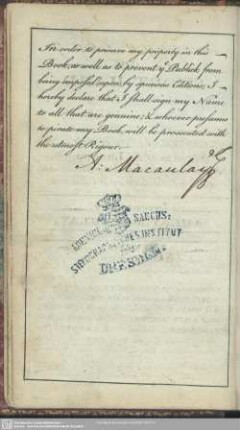 In order to preserve my property in this
Book, as well as to prevent yͤ Publick from
being imposed upon by spurious Editions; I
hereby declare that I shall sign my Name
to all that are genuine; & whoever presumes
to pirate my Book, will be prosecuted with
the utmost Rigour.
A: Macaulay
SAECHS:
INSTITUT
DRESDEN